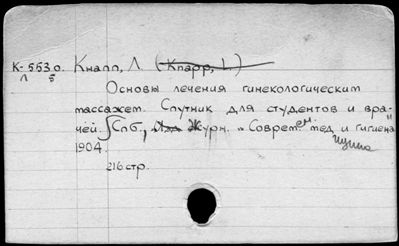 К-5530. Кнапп, Л. (Knapp, L.)
Л 5
Основы лечения гинекологическим
массажем. Спутник для студентов и вра-
чей. Спб., Журн. "Соврем. мед. и гигиена"
1904.
216 стр.